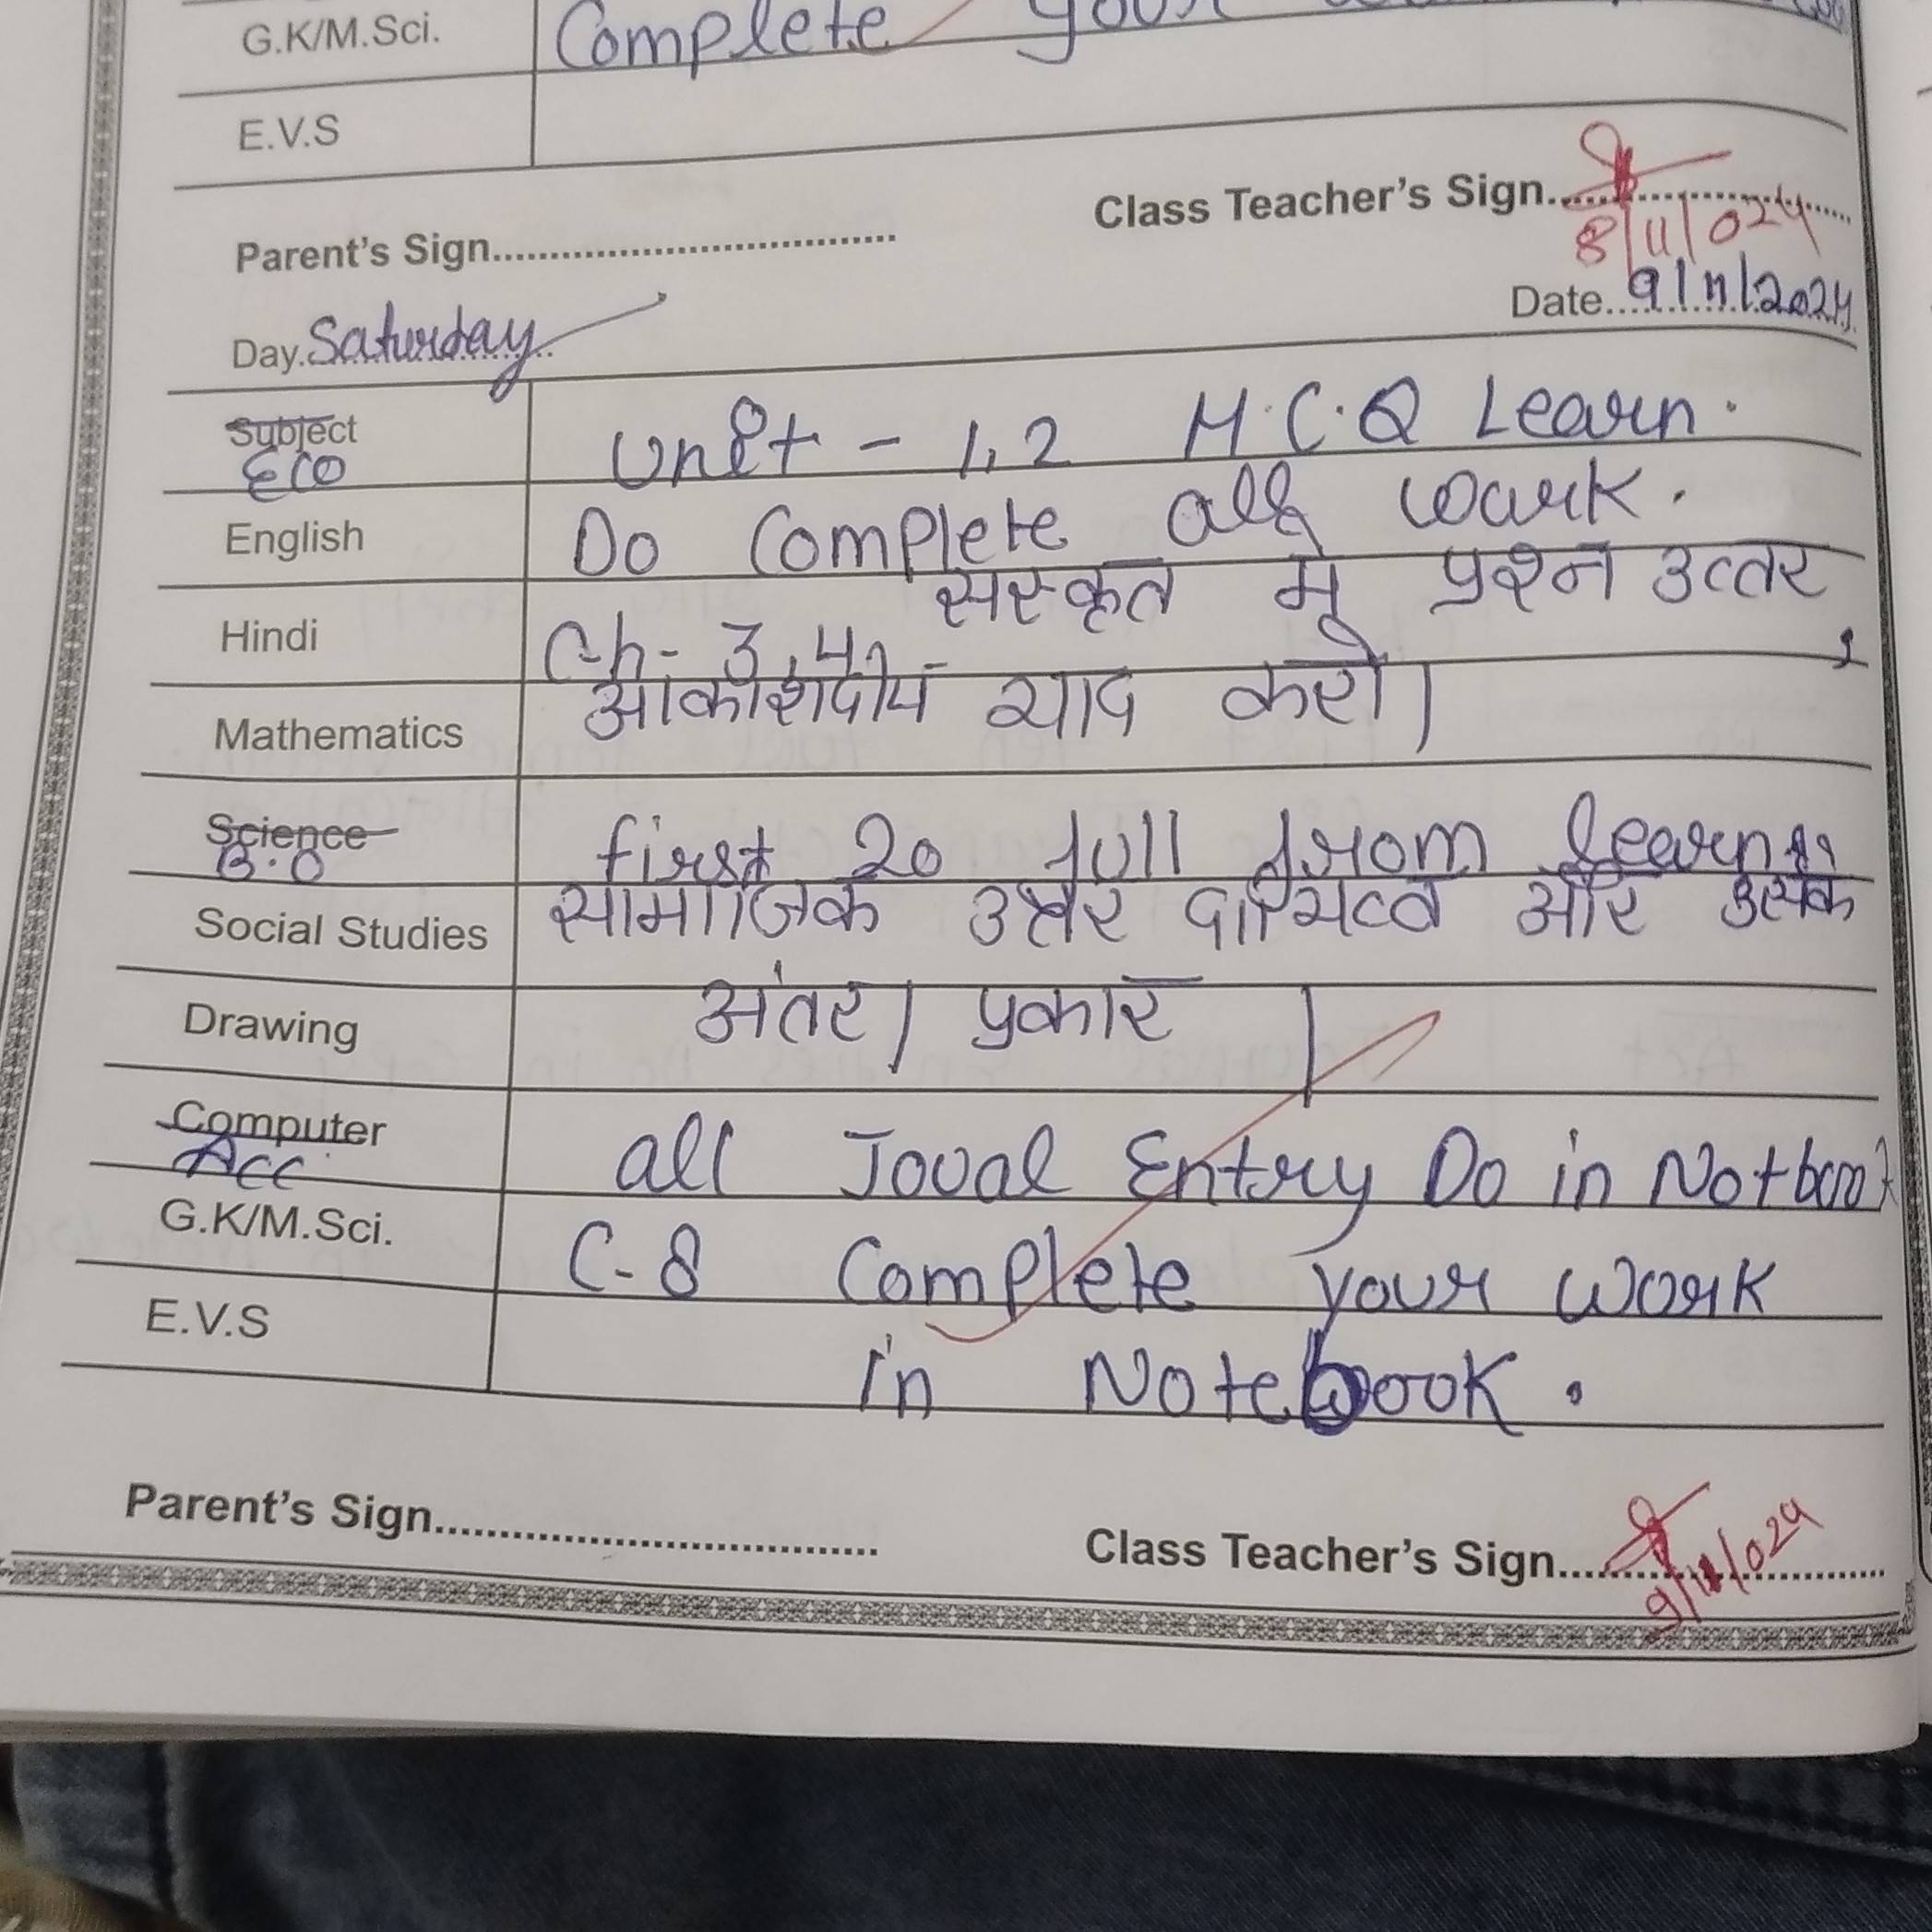 G.K/M.Sci. Complete
E.V.S
Class Teacher's Sign..........................
8/11/024
Parent's Sign..........................
Date..9/11/2024
Day.Saturday
Subject
Eco Unit - 1,2 M.C.Q Learn.
English Do Complete all work.
संस्कृत में प्रश्न उत्तर,
Hindi Ch- 3,4,
आकाशदीप याद करो।
Mathematics
Science
B.O first 20 full from learn
Social Studies सामाजिक उत्तर दायित्व और उसके
Drawing अंतर। प्रकार |
Computer
Acc all Joual Entry Do in Notbook
G.K/M.Sci. C-8 Complete your work
E.V.S in Notebook.
Parent's Sign..........................
Class Teacher's Sign..........................
9/11/024